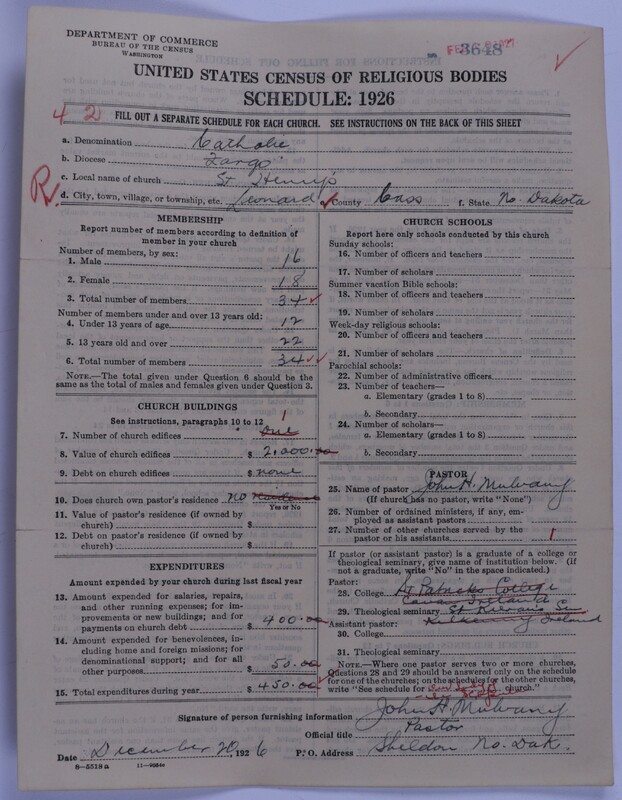 DEPARTMENT OF COMMERCE
BUREAU OF THE CENSUS
WASHINGTON
3648
UNITED STATES CENSUS OF RELIGIOUS BODIES
SCHEDULE: 1926
4 2
FILL OUT A SEPARATE SCHEDULE FOR EACH CHURCH. SEE INSTRUCTIONS ON THE BACK OF THIS SHEET
a. Denomination Catholic
b. Diocese Fargo
c. Local name of church St Henry's
R
d. City, town, village, or township, etc. Leonard County Cass f. State No. Dakota
MEMBERSHIP
Report number of members according to definition of
member in your church
Number of members, by sex:
1. Male 16
2. Female 18
3. Total number of members 34
Number of members under and over 13 years old:
4. Under 13 years of age 12
5. 13 years old and over 22
6. Total number of members 34
NOTE.—The total given under Question 6 should be
same as the total of males and females given under Question 3.
CHURCH BUILDINGS
See instructions, paragraphs 10 to 12
1
7. Number of church edifices one
8. Value of church edifices $ 2,000.00
9. Debt on church edifices $ none
10. Does church own pastor's residence no
Yes or No
11. Value of pastor's residence (if owned by
church) $
12. Debt on pastor's residence (if owned by
church) $
EXPENDITURES
Amount expended by your church during last fiscal year
13. Amount expended for salaries, repairs,
and other running expenses; for im-
provements or new buildings; and for
payments on church debt $ 400.00
14. Amount expended for benevolences, in-
cluding home and foreign missions; for
denominational support; and for all
other purposes $ 50.00
15. Total expenditures during year $ 450.00
CHURCH SCHOOLS
Report here only schools conducted by this church
Sunday schools:
16. Number of officers and teachers
17. Number of scholars
Summer vacation Bible schools:
18. Number of officers and teachers
19. Number of scholars
Week-day religious schools:
20. Number of officers and teachers
21. Number of scholars
Parochial schools:
22. Number of administrative officers
23. Number of teachers—
a. Elementary (grades 1 to 8)
b. Secondary
24. Number of scholars—
a. Elementary (grades 1 to 8)
b. Secondary
PASTOR
25. Name of pastor John H. Mulvany
(If church has no pastor, write "None")
26. Number of ordained ministers, if any, em-
ployed as assistant pastors
27. Number of other churches served by the
pastor or his assistants 1
If pastor (or assistant pastor) is a graduate of a college or
theological seminary, give name of institution below. (if
not a graduate, write "No" in the space indicated.)
Pastor:
28. College St Patricks College
Cavan Ireland
29. Theological seminary St Kieran's Sem
Assistant pastor: Kilkenny Ireland
30. College
31. Theological seminary
NOTE.—Where one pastor serves two or more churches,
Questions 28 and 29 should be answered only on the schedule
for one of the churches; on the schedules for the other churches,
write "See schedule for church."
Signature of person furnishing information John H. Mulvany
Official title Pastor
Date December 20, 1926 P. O. Address Sheldon No. Dak.
8—5518 a 11—9084